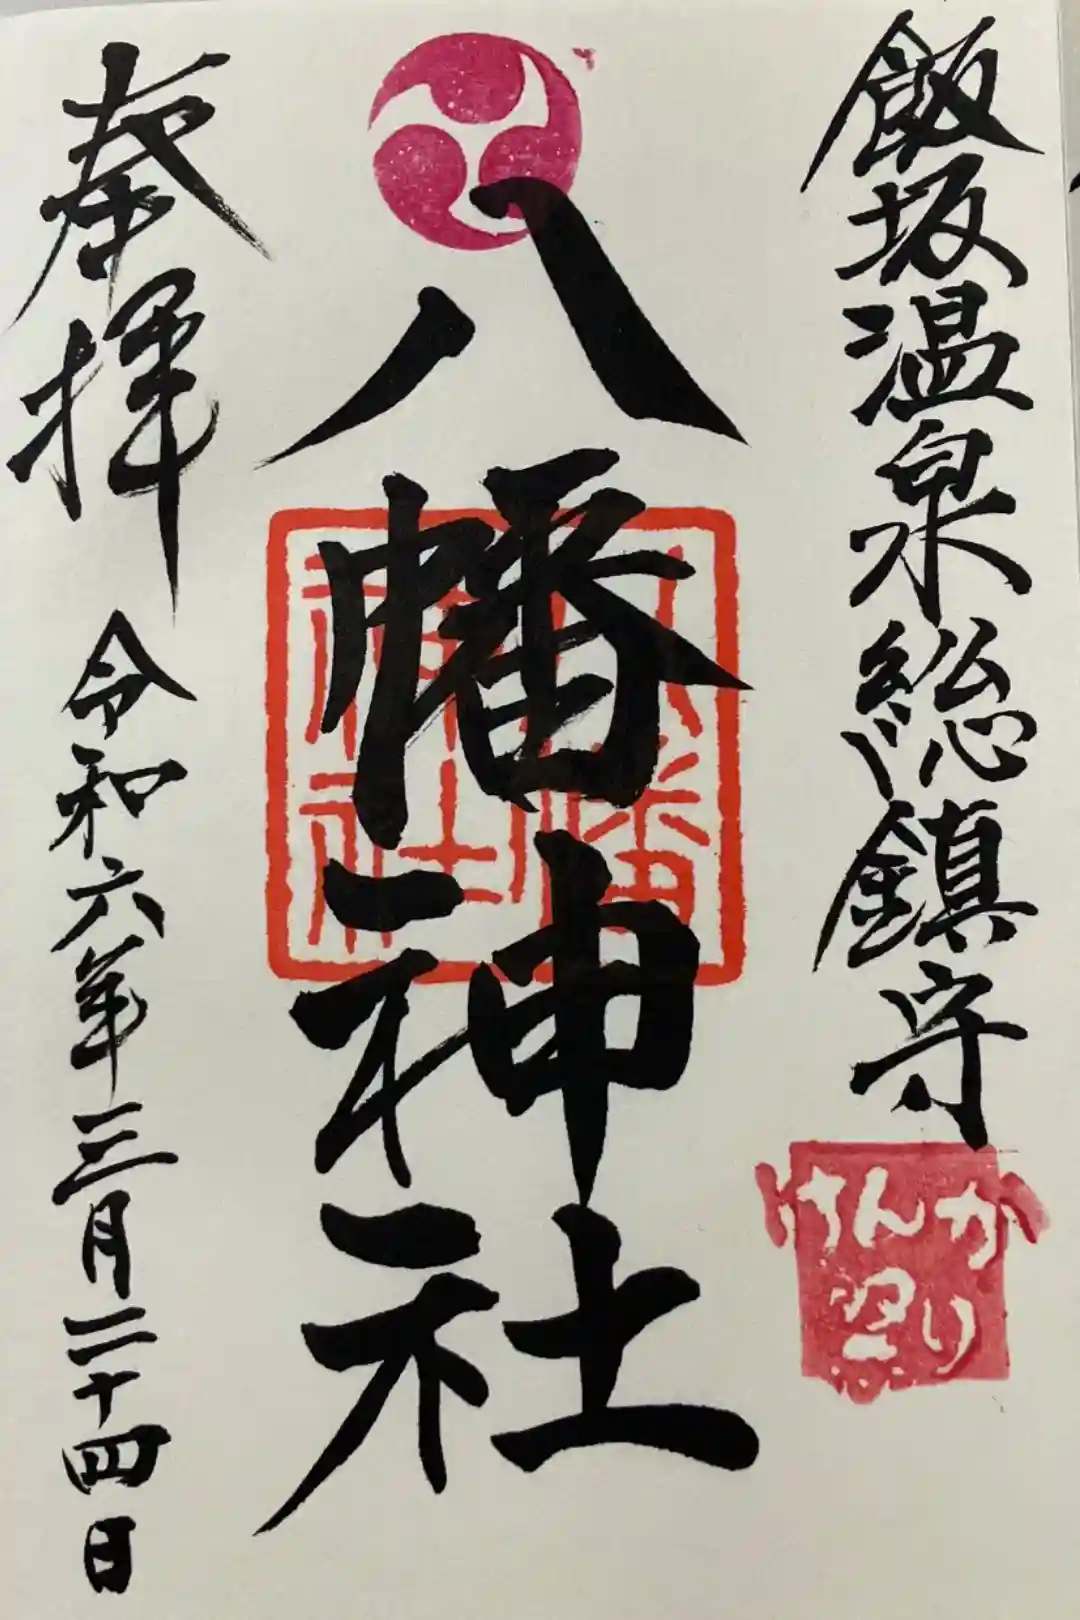 飯坂温泉総鎮守
けんか
祭り
八幡神社
八幡
神社
奉拝
令和六年三月二十四日